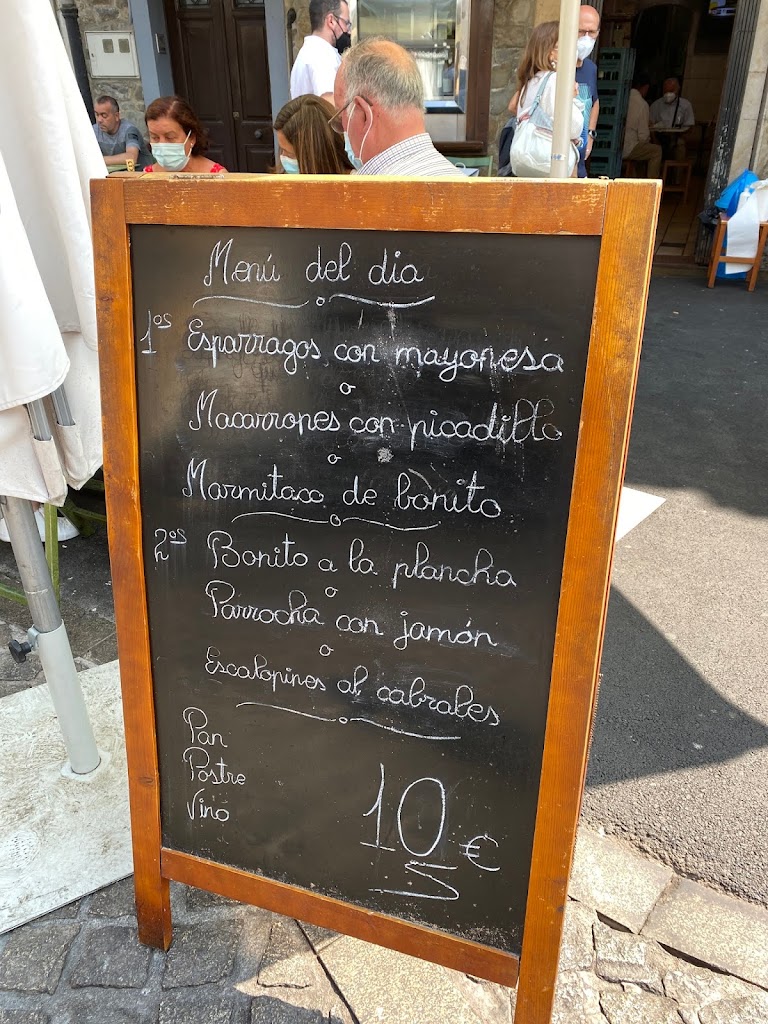 Menú del dia
1ºs Esparragos con mayonesa
o
Macarrones con picadillo
o
Marmitaco de bonito
2ºs Bonito a la plancha
o
Parrocha con jamón
o
Escalopines al cabrales
Pan
Postre
Vino
10 €